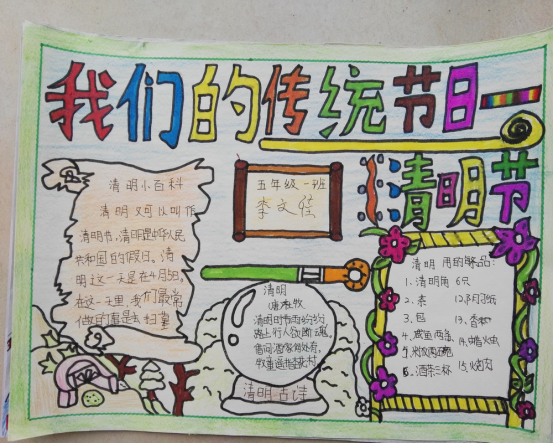 我们的传统节日
清明节
五年级一班
李文
清明小百科
清明又可以叫作
清明节,清明是中华人民
共和国的假日。清
明这一天是在4月5日。
在这一天里,我们最常
做的事是去扫墓
清明
唐 杜牧
清明时节雨纷纷
路上行人欲断魂。
借问酒家何处有,
牧童遥指杏花村。
清明古诗
清明用的祭品:
1.清明角6只
2.
3.包
4.咸鱼两条
5.
6.酒茶三杯
12.
13.香
14.蜡烛
15.烧肉